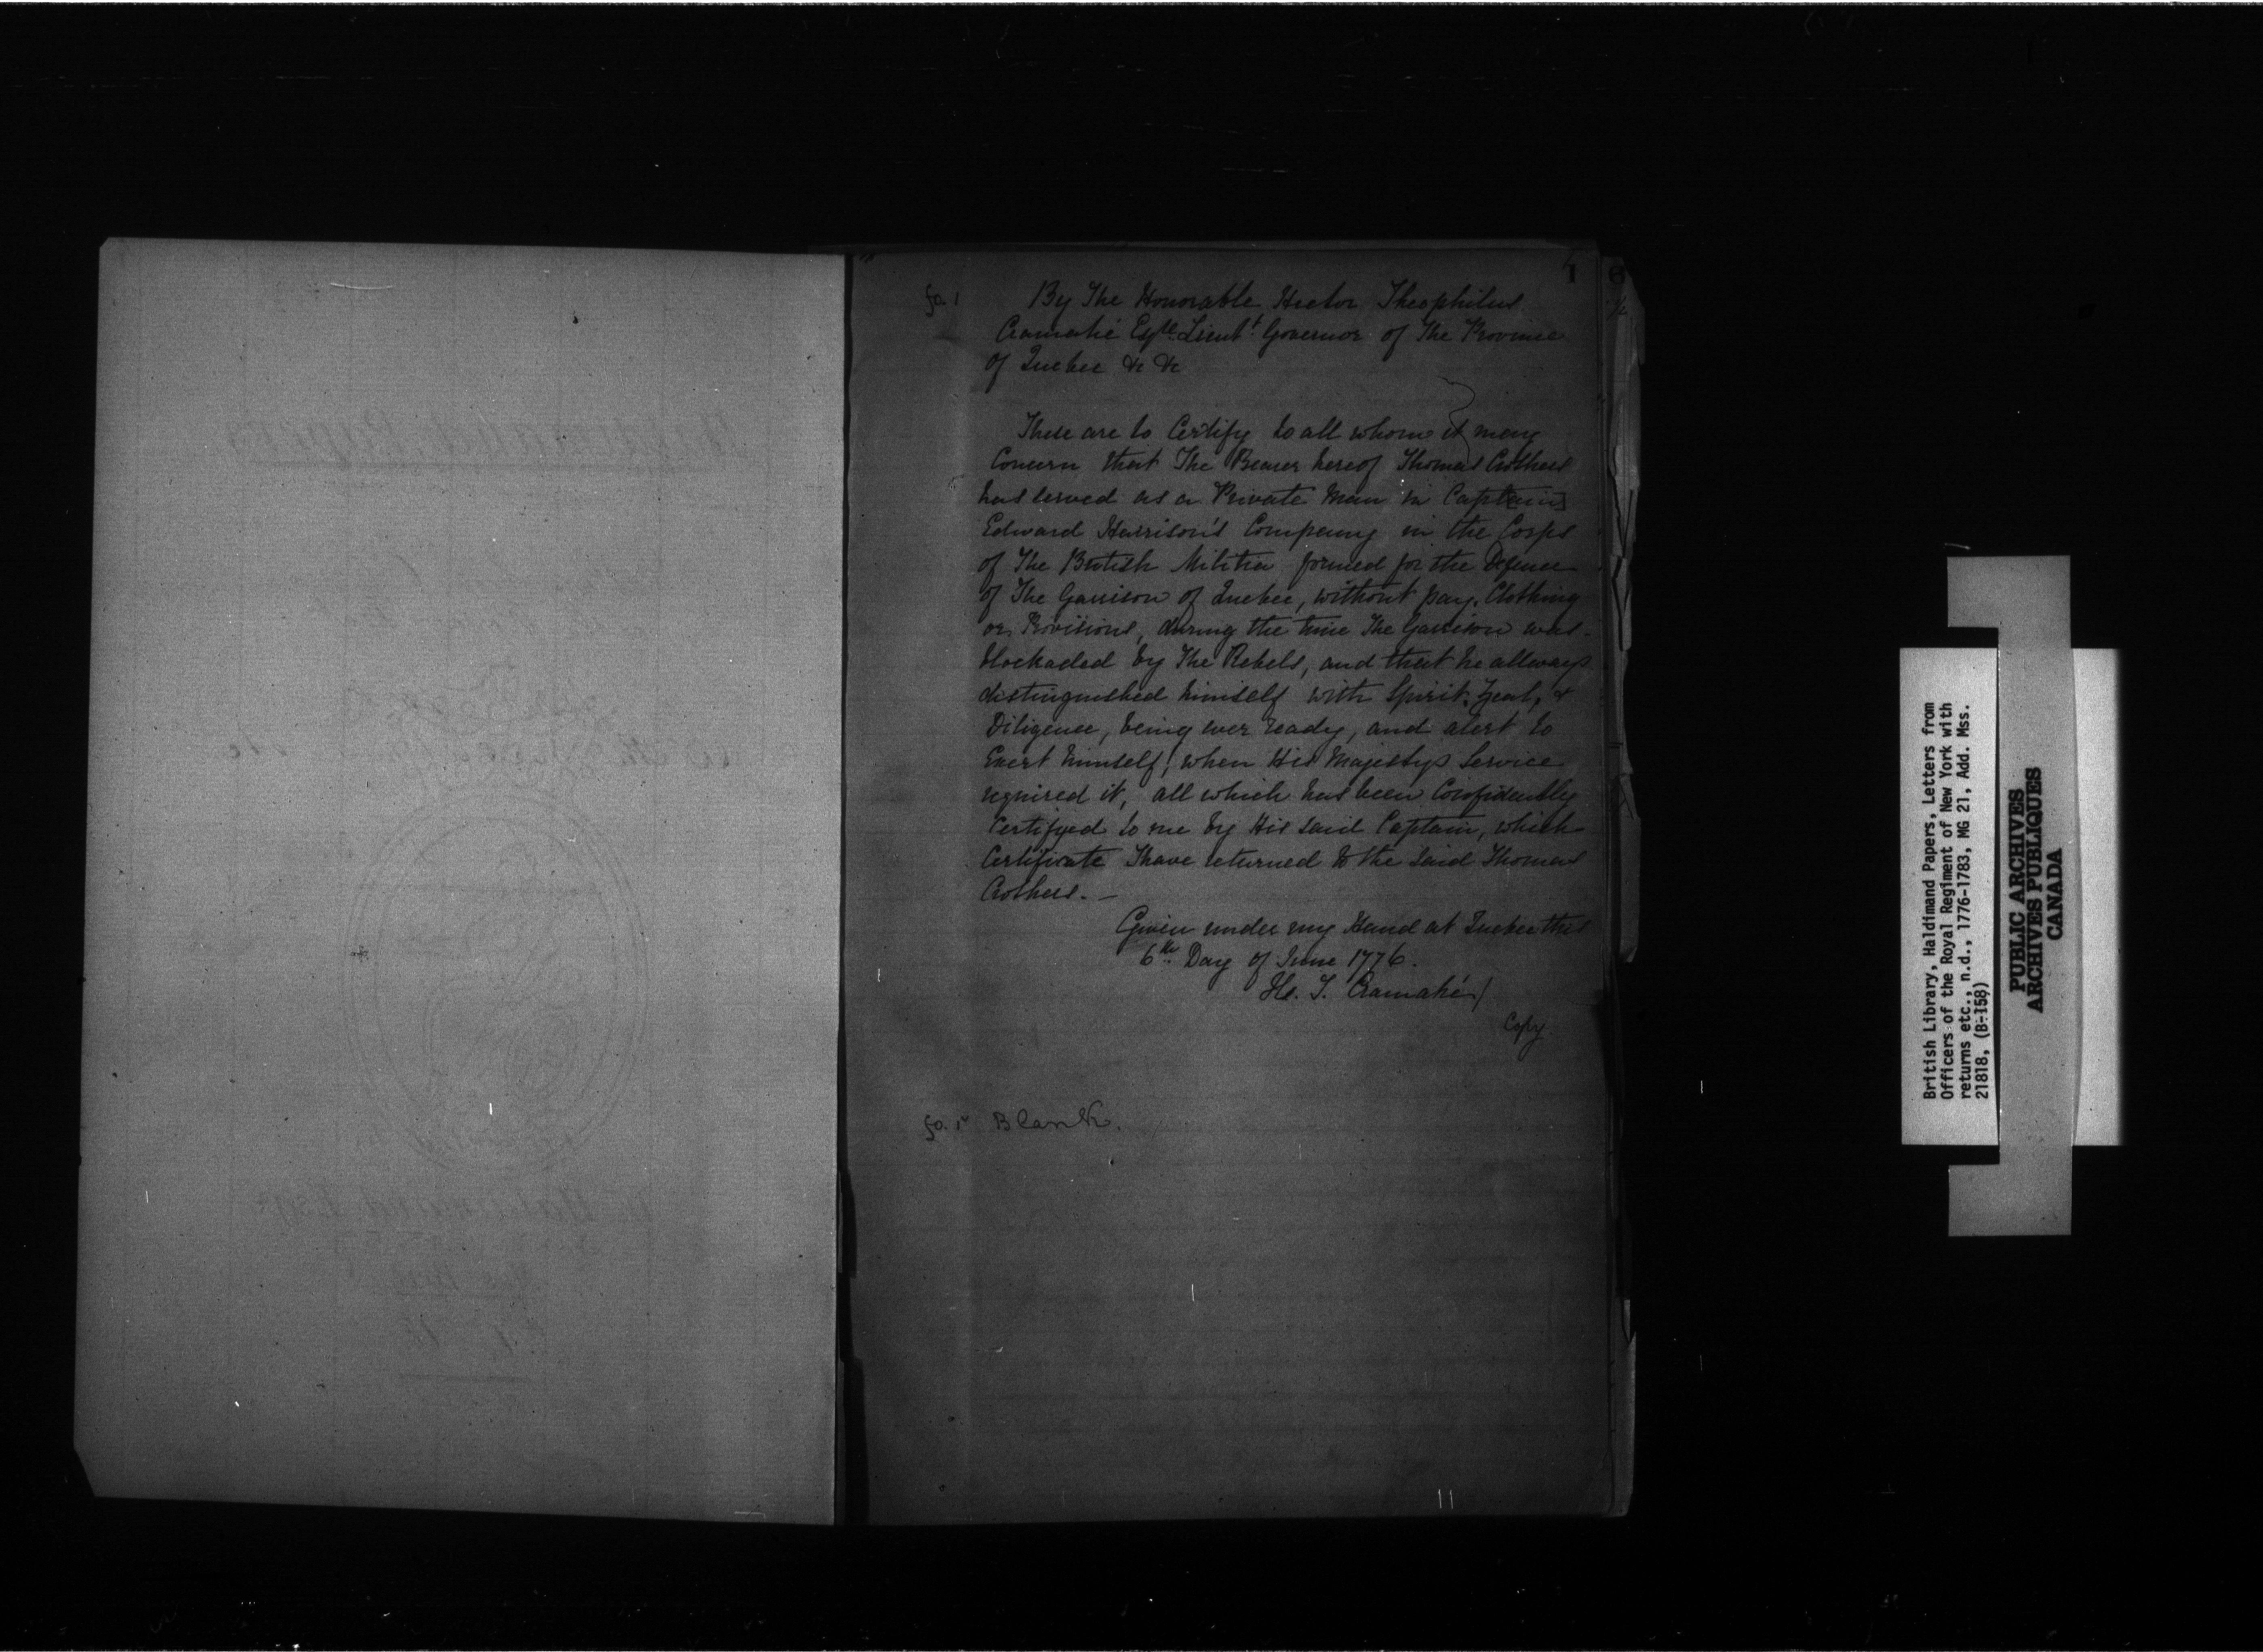 1
fo. 1
By The Honorable Hector Theophilus
Cramahé Esqre. Lieutt. Governor of The Province
of Quebec &c &c
These are to Certify to all whom it may
Concern that The Bearer hereof Thomas Crothers
has served as a Private Man in Capt[ain]
Edward Harrison's Company in the Corps
of The British Militia formed for the Defence
of The Garrison of Quebec, without pay, Clothing
or Provisions, during the time The Garrison was
blockaded by The Rebels, and that he allways
distinguished himself with Spirit, Zeal, &
Diligence, being ever ready, and alert to
Exert himself, when His Majestys Service
required it, all which has been Confidently
Certifyed to me by His said Captain, which
Certificate I have returned to the said Thomas
Crothers. —
Given under my Hand at Quebec this
6th Day of June 1776.
H. T. Cramahé /
Copy
fo. 1v Blank.
British Library, Haldimand Papers, Letters from
Officers of the Royal Regiment of New York with
returns etc., n.d., 1776-1783, MG 21, Add. Mss.
21818, (B-158)
PUBLIC ARCHIVES
ARCHIVES PUBLIQUES
CANADA